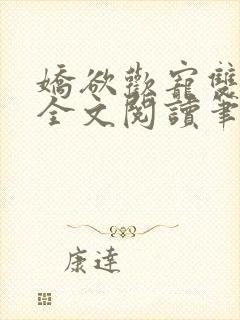 嬌欲歡寵雙
全文閱讀筆
康達